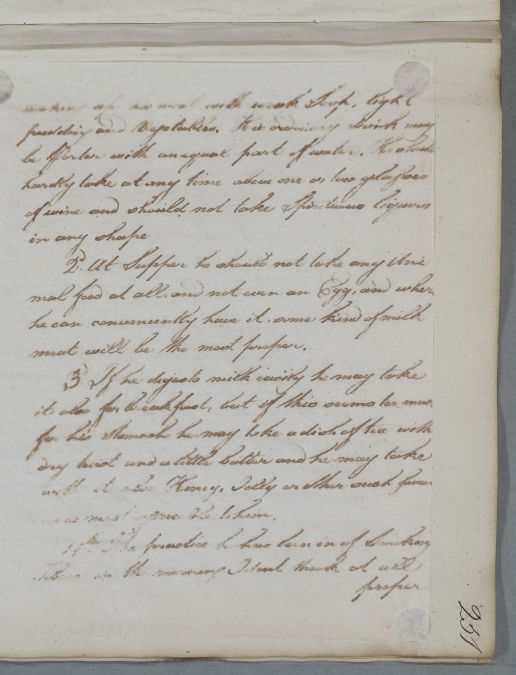 making up his meal with weak Soup, light
pudding and vegetables. His ordinary drink may
be Porter with an equal part of water. He should
hardly take at any time above one or two glasses
of wine and should not take Spirituous liquors
in any shape
2d. At Supper he should not take any Ani
mal food at all, and not even an Egg, and when
he can conveniently have it, some kind of milk
meat will be the most proper.
3d. If he digests milk easily he may take
it also for breakfast, but if this seems too much
for his stomach he may take a dish of tea with
dry toast and a little butter and he may take
with it also Honey, Jelly or other such
most agreeable to him.
4th. The practice he has been in of Smoking
in the morning I dont think at all
proper
251